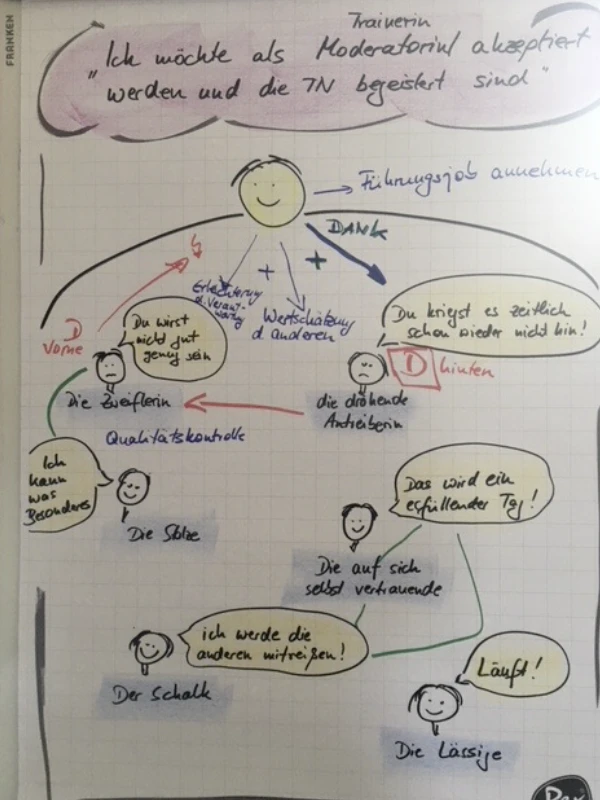 FRANKEN
Trainerin
"Ich möchte als Moderatorin/ akzeptiert
werden und die TN begeistert sind"
→ Führungsjob annehmen
DANK
+
+
Erleichterung
d. Verant-
wortung
Wertschätzung
d. anderen
D
Vorne
Du wirst
nicht gut
genug sein
Die Zweiflerin
Du kriegst es zeitlich
schon wieder nicht hin!
D hinten
die drohende
Antreiberin
Qualitätskontrolle
Ich
kann
was
Besonderes
Die Stolze
Das wird ein
erfüllender Tag!
Die auf sich
selbst vertrauende
ich werde die
anderen mitreißen!
Der Schalk
Läuft!
Die Lässige